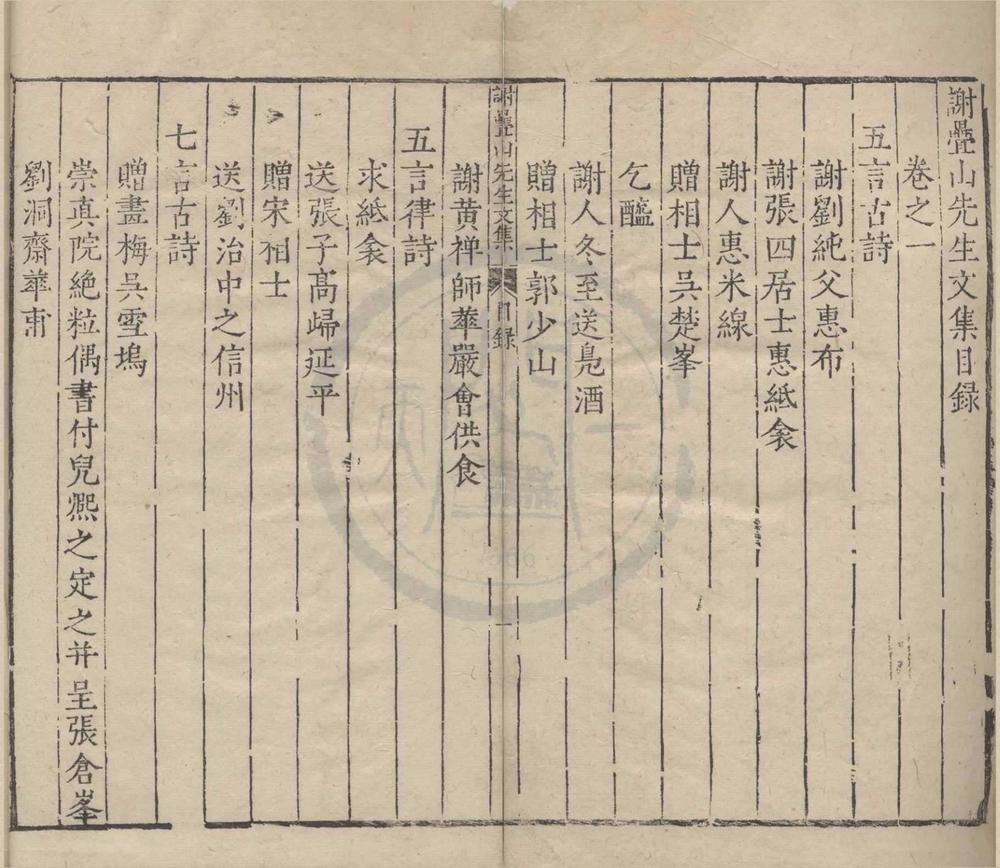 謝疊山先生文集目録
卷之一
五言古詩
謝劉純父惠布
謝張四居士惠紙衾
謝人惠米線
贈相士吳楚峯
乞醯
謝人冬至送鳬酒
贈相士郭少山
謝疊山先生文集
目録
一
謝黄禅師華嚴會供食
五言律詩
求紙衾
送張子髙歸延平
贈宋相士
送劉治中之信州
七言古詩
贈畫梅吳雪塢
崇真院絶粒偶書付兒熈之定之并呈張倉峯
劉洞齋華甫